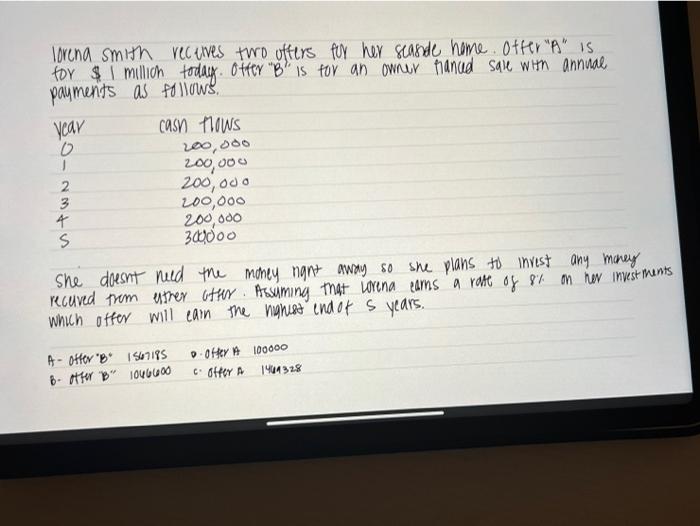 lorena smith recieves two offers for her seaside home. Offer "A" is
for $1 million today. Offer "B" is for an owner fianced sale with annual
payments as follows.
year cash flows
0 200,000
1 200,000
2 200,000
3 200,000
4 200,000
5 300000
She doesnt need the money right away so she plans to invest any money
recieved from either offer. Assuming that Lorena earns a rate of 8% on her investments
which offer will earn the highest end of 5 years.
A- Offer "B" 1567185 D. Offer A 100000
B- Offer "B" 1046600 C- Offer A 1469328